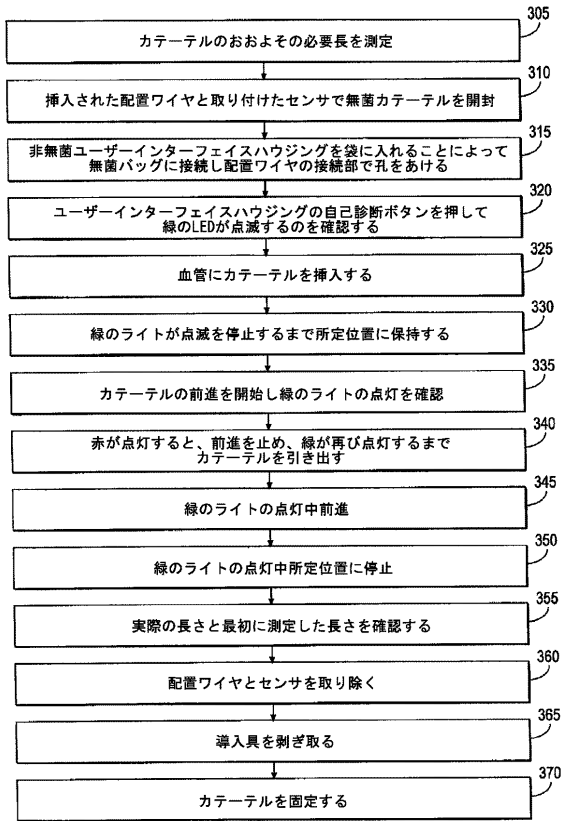 305
カテーテルのおおよその必要長を測定
310
挿入された配置ワイヤと取り付けたセンサで無菌カテーテルを開封
315
非無菌ユーザーインターフェイスハウジングを袋に入れることによって
無菌バッグに接続し配置ワイヤの接続部で孔をあける
320
ユーザーインターフェイスハウジングの自己診断ボタンを押して
緑のLEDが点滅するのを確認する
325
血管にカテーテルを挿入する
330
緑のライトが点滅を停止するまで所定位置に保持する
335
カテーテルの前進を開始し緑のライトの点灯を確認
340
赤が点灯すると、前進を止め、緑が再び点灯するまで
カテーテルを引き出す
345
緑のライトの点灯中前進
350
緑のライトの点灯中所定位置に停止
355
実際の長さと最初に測定した長さを確認する
360
配置ワイヤとセンサを取り除く
365
導入具を剥ぎ取る
370
カテーテルを固定する